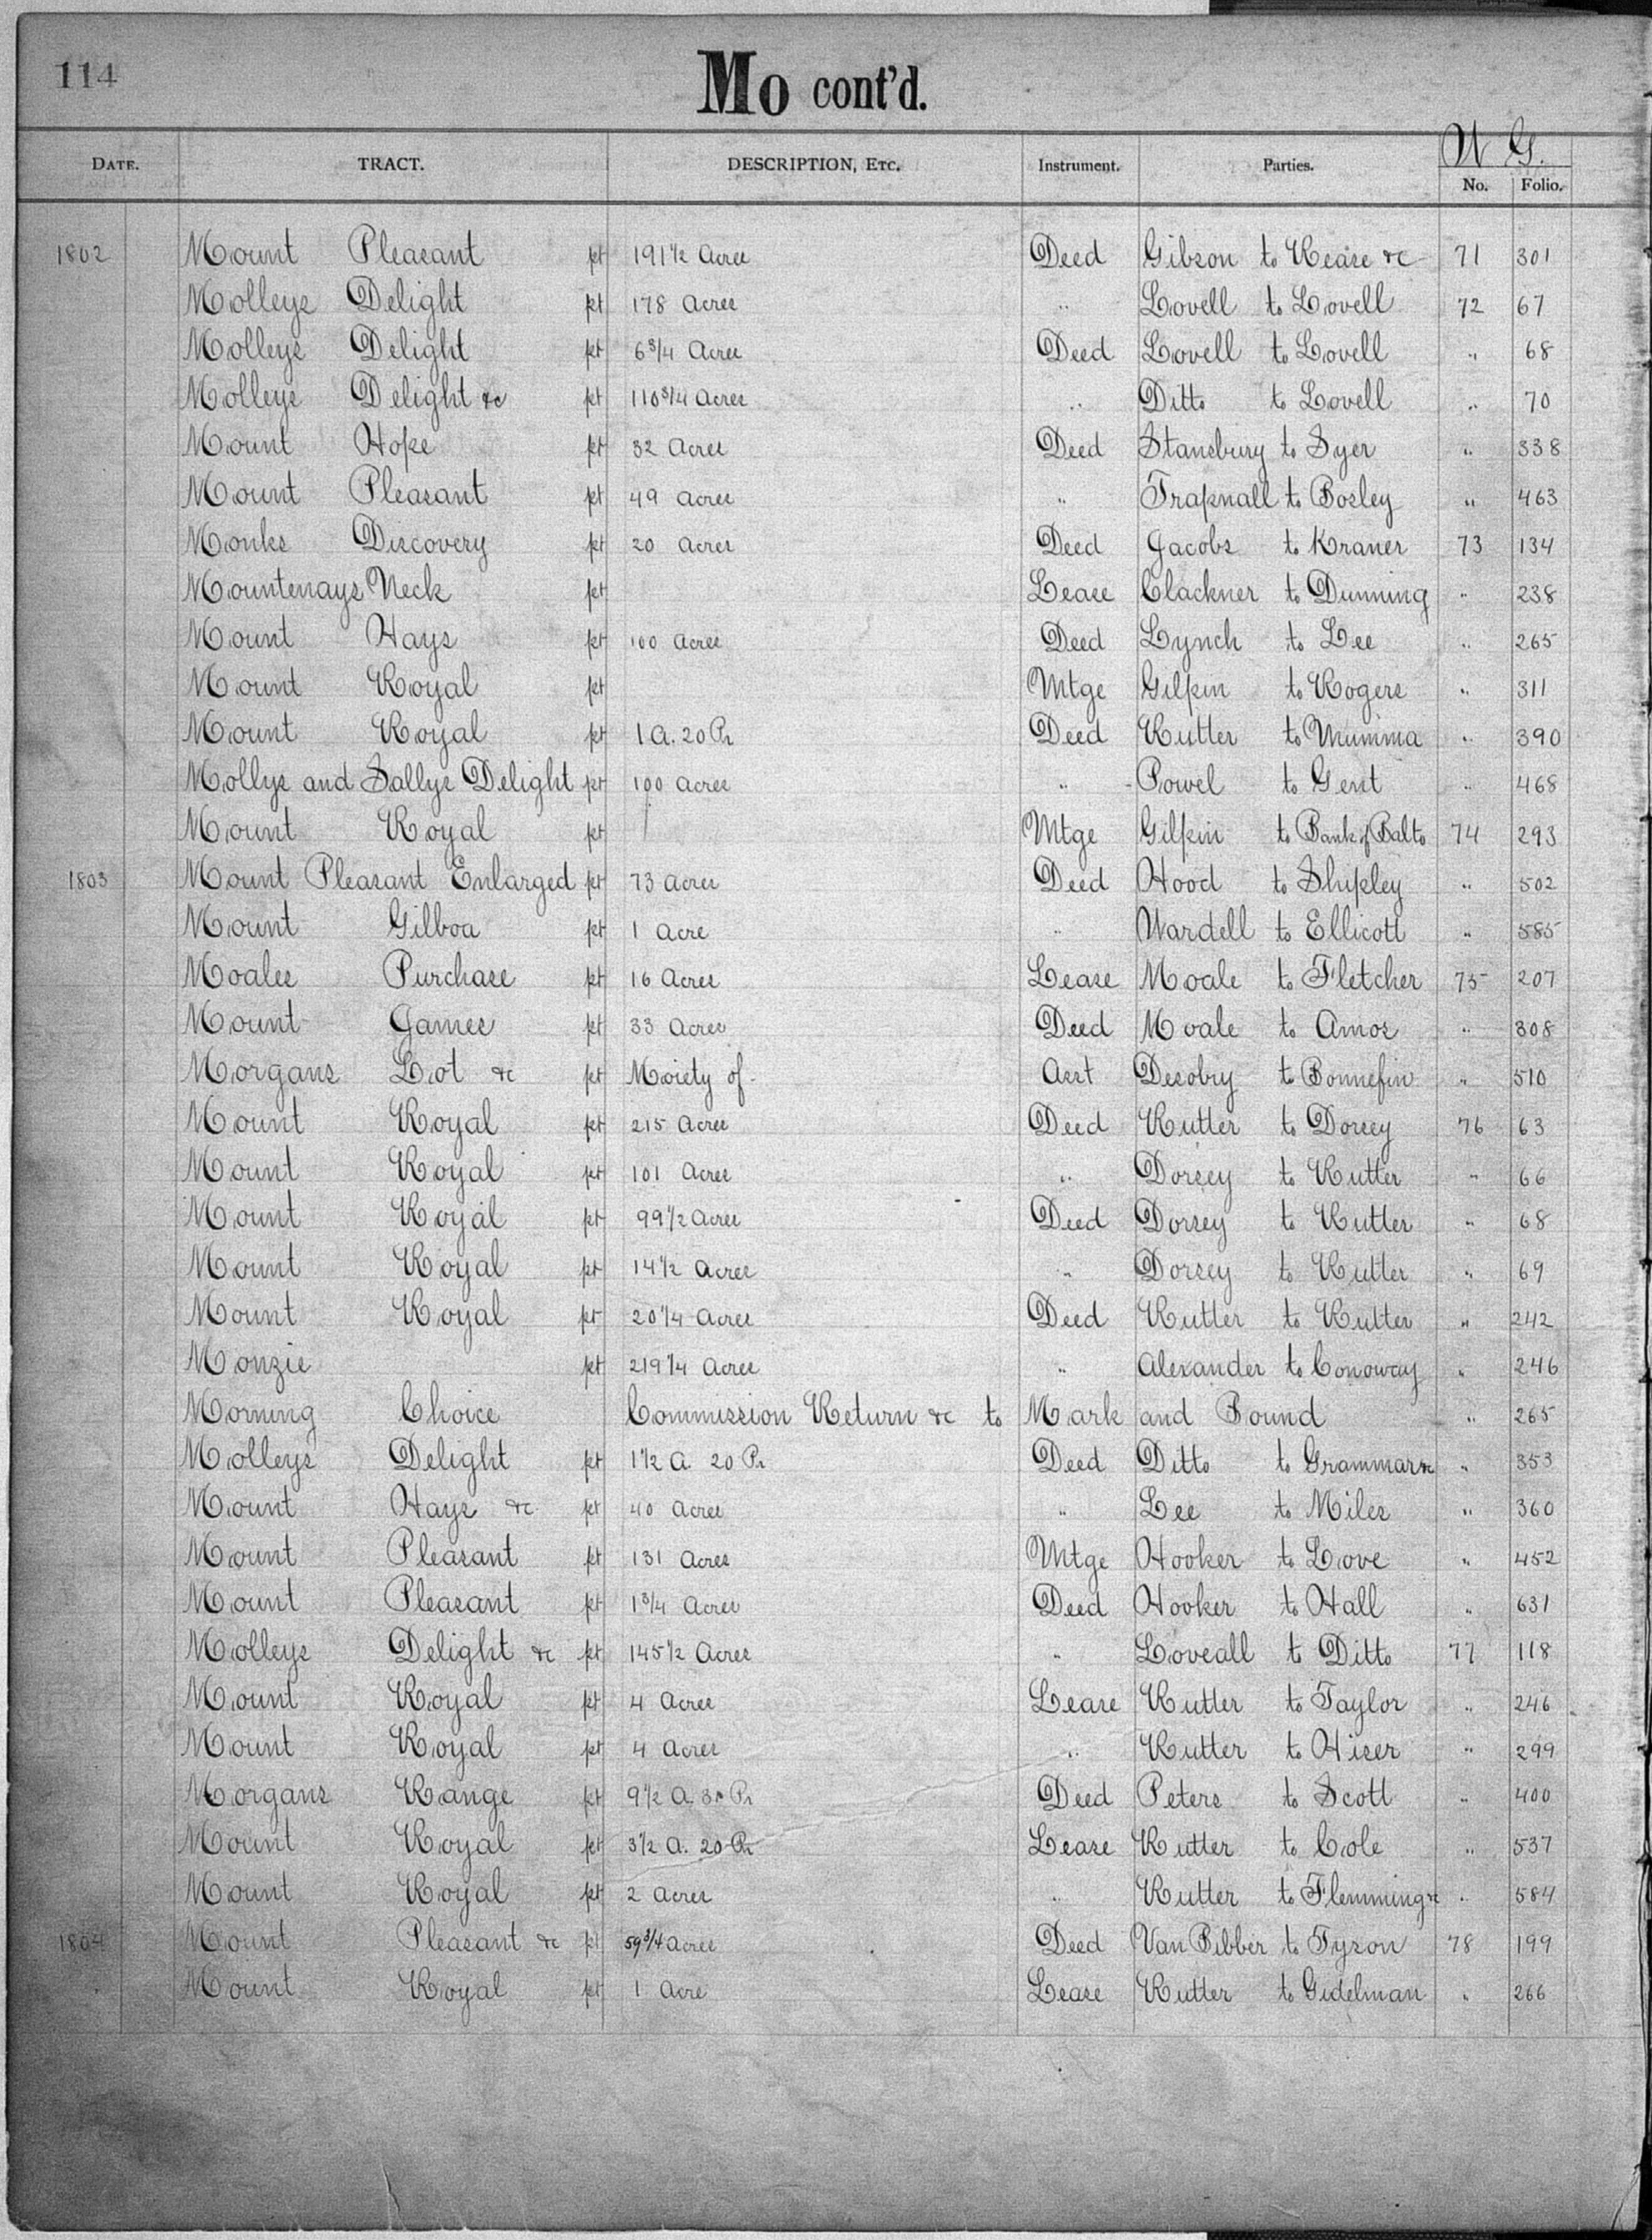 114
Mo cont'd.
W G.
DATE. TRACT. DESCRIPTION, ETC. Instrument. Parties. No. Folio.
1802 Mount Pleasant pt 191 1/2 Acres Deed Gibson to &c 71 301
Molleys Delight pt 178 Acres " Lovell to Lovell 72 67
Molleys Delight pt 6 3/4 Acres Deed Lovell to Lovell " 68
Molleys Delight &c pt 110 3/4 Acres " Ditto to Lovell " 70
Mount Hope pt 32 Acres Deed Stansbury to Syer " 338
Mount Pleasant pt 49 Acres " Trapnall to Bosley " 463
Monks Discovery pt 20 Acres Deed Jacobs to Kraner 73 134
Mountenays Neck pt Lease Clackner to Dunning " 238
Mount Hays pt 100 Acres Deed Lynch to Lee " 265
Mount Royal pt Mtge Gilpin to Rogers " 311
Mount Royal pt 1 A. 20 Pr Deed Rutter to Mumma " 390
Mollys and Sallys Delight pt 100 Acres " Powel to Gent " 468
Mount Royal pt Mtge Gilpin to Bank of Balto 74 293
1803 Mount Pleasant Enlarged pt 73 Acres Deed Hood to Shipley " 502
Mount Gilboa pt 1 Acre " Wardell to Ellicott " 585
Moales Purchase pt 16 Acres Lease Moale to Fletcher 75 207
Mount James pt 33 Acres Deed Moale to Amos " 308
Morgans Lot &c pt Moiety of Asst Desobry to Bonnefin " 510
Mount Royal pt 215 Acres Deed Rutter to Dorsey 76 63
Mount Royal pt 101 Acres " Dorsey to Rutter " 66
Mount Royal pt 99 1/2 Acres Deed Dorsey to Rutter " 68
Mount Royal pt 14 1/2 Acres " Dorsey to Rutter " 69
Mount Royal pt 20 1/4 Acres Deed Rutter to Rutter " 242
Monzie pt 219 1/4 Acres " Alexander to Conoway " 246
Morning Choice Commission Return &c to Mark and Bound " 265
Molleys Delight pt 1 1/2 A. 20 Pr Deed Ditto to Grammar &c " 353
Mount Hays &c pt 40 Acres " Lee to Miles " 360
Mount Pleasant pt 131 Acres Mtge Hooker to Love " 452
Mount Pleasant pt 1 3/4 Acres Deed Hooker to Hall " 631
Molleys Delight &c pt 145 1/2 Acres " Loveall to Ditto 77 118
Mount Royal pt 4 Acres Lease Rutter to Taylor " 246
Mount Royal pt 4 Acres " Rutter to Hiser " 299
Morgans Range pt 9 1/2 A. Pr Deed Peters to Scott " 400
Mount Royal pt 3 1/2 A. 20 Pr Lease Rutter to Cole " 537
Mount Royal pt 2 Acres " Rutter to Flemming &c " 584
1804 Mount Pleasant &c pt 59 3/4 Acres Deed Van Bibber to Tyson 78 199
Mount Royal pt 1 Acre Lease Rutter to Gidelman " 266